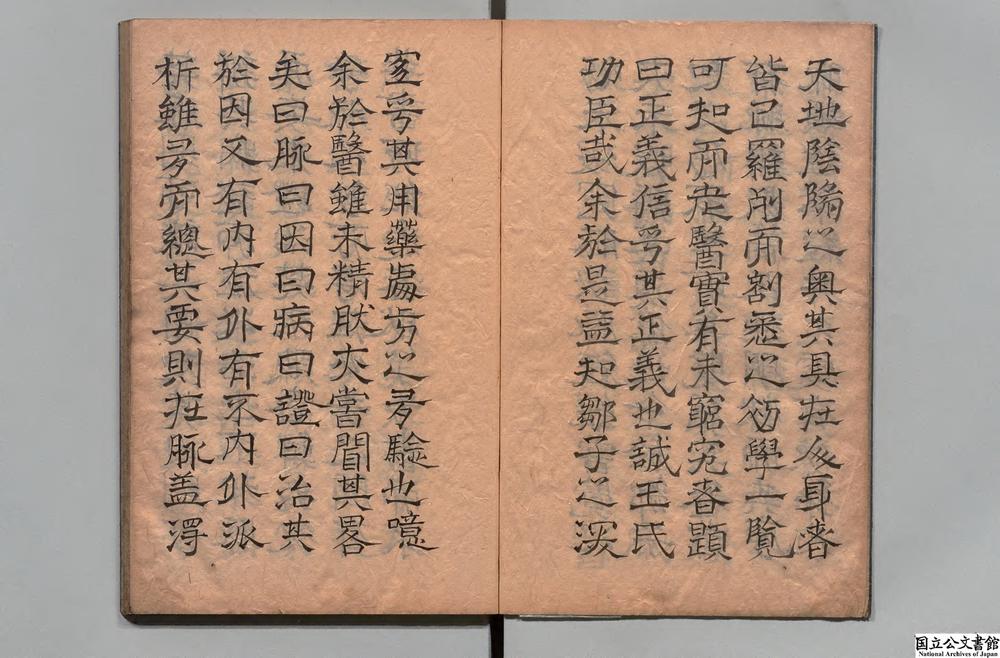 天地陰陽之奥其具在人身者
皆已羅列而割悉之初學一覧
可知而老醫實有未窮究者題
曰正義信乎其正義也誠王氏
功臣哉余於是益知鄒子之深
宻乎其用藥處方之多驗也噫
余於醫雖未精然亦嘗聞其畧
矣曰脉曰因曰病曰證曰治其
於因又有内有外有不内外派
析雖多而總其要則在脉盖淂
国立公文書館
National Archives of Japan